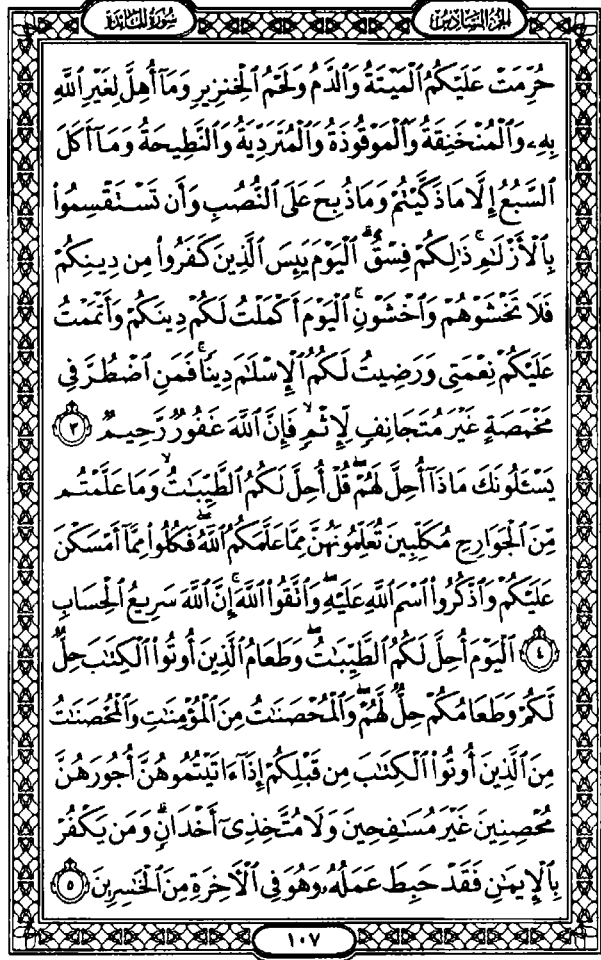 سُورَةُ المَائِدَة
الجُزْءُ السَّادِسُ
حُرِّمَتْ عَلَيْكُمُ ٱلْمَيْتَةُ وَٱلدَّمُ وَلَحْمُ ٱلْخِنزِيرِ وَمَآ أُهِلَّ لِغَيْرِ ٱللَّهِ
بِهِۦ وَٱلْمُنْخَنِقَةُ وَٱلْمَوْقُوذَةُ وَٱلْمُتَرَدِّيَةُ وَٱلنَّطِيحَةُ وَمَآ أَكَلَ
ٱلسَّبُعُ إِلَّا مَا ذَكَّيْتُمْ وَمَا ذُبِحَ عَلَى ٱلنُّصُبِ وَأَن تَسْتَقْسِمُوا۟
بِٱلْأَزْلَٰمِ ۚ ذَٰلِكُمْ فِسْقٌ ۗ ٱلْيَوْمَ يَئِسَ ٱلَّذِينَ كَفَرُوا۟ مِن دِينِكُمْ
فَلَا تَخْشَوْهُمْ وَٱخْشَوْنِ ۚ ٱلْيَوْمَ أَكْمَلْتُ لَكُمْ دِينَكُمْ وَأَتْمَمْتُ
عَلَيْكُمْ نِعْمَتِى وَرَضِيتُ لَكُمُ ٱلْإِسْلَٰمَ دِينًا ۚ فَمَنِ ٱضْطُرَّ فِى
مَخْمَصَةٍ غَيْرَ مُتَجَانِفٍ لِّإِثْمٍ ۙ فَإِنَّ ٱللَّهَ غَفُورٌ رَّحِيمٌ ٣
يَسْـَٔلُونَكَ مَاذَآ أُحِلَّ لَهُمْ ۖ قُلْ أُحِلَّ لَكُمُ ٱلطَّيِّبَٰتُ ۙ وَمَا عَلَّمْتُم
مِّنَ ٱلْجَوَارِحِ مُكَلِّبِينَ تُعَلِّمُونَهُنَّ مِمَّا عَلَّمَكُمُ ٱللَّهُ ۖ فَكُلُوا۟ مِمَّآ أَمْسَكْنَ
عَلَيْكُمْ وَٱذْكُرُوا۟ ٱسْمَ ٱللَّهِ عَلَيْهِ ۖ وَٱتَّقُوا۟ ٱللَّهَ ۚ إِنَّ ٱللَّهَ سَرِيعُ ٱلْحِسَابِ
٤ ٱلْيَوْمَ أُحِلَّ لَكُمُ ٱلطَّيِّبَٰتُ ۖ وَطَعَامُ ٱلَّذِينَ أُوتُوا۟ ٱلْكِتَٰبَ حِلٌّ
لَّكُمْ وَطَعَامُكُمْ حِلٌّ لَّهُمْ ۖ وَٱلْمُحْصَنَٰتُ مِنَ ٱلْمُؤْمِنَٰتِ وَٱلْمُحْصَنَٰتُ
مِنَ ٱلَّذِينَ أُوتُوا۟ ٱلْكِتَٰبَ مِن قَبْلِكُمْ إِذَآ ءَاتَيْتُمُوهُنَّ أُجُورَهُنَّ
مُحْصِنِينَ غَيْرَ مُسَٰفِحِينَ وَلَا مُتَّخِذِىٓ أَخْدَانٍ ۗ وَمَن يَكْفُرْ
بِٱلْإِيمَٰنِ فَقَدْ حَبِطَ عَمَلُهُۥ وَهُوَ فِى ٱلْءَاخِرَةِ مِنَ ٱلْخَٰسِرِينَ ٥
١٠٧